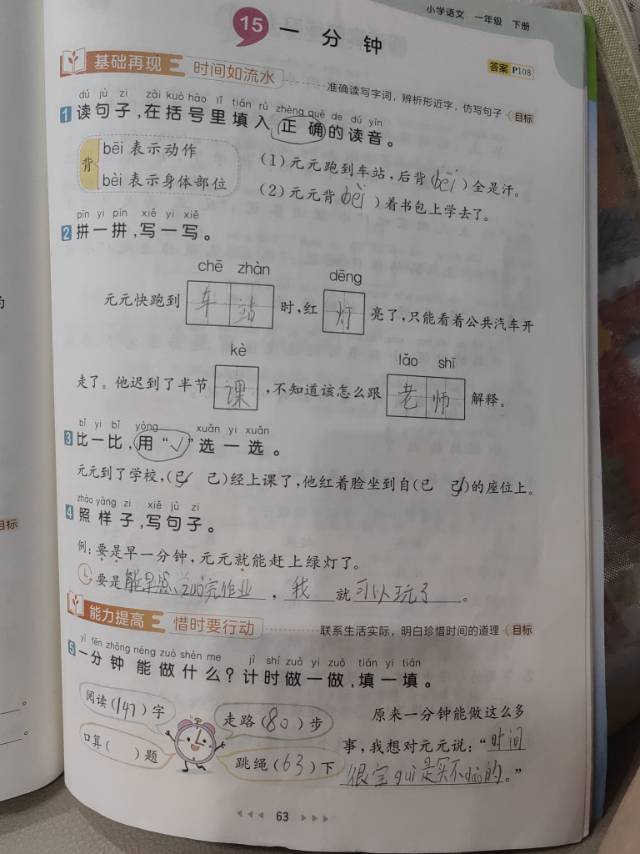 小学语文 一年级 下册
15 一分钟
基础再现 时间如流水
答案 P108
准确读写字词，辨析形近字，仿写句子 目标
dú jù zi zài kuò hào lǐ tián rù zhèng què de dú yīn
1 读句子，在括号里填入正确的读音。
背 bēi 表示动作
bèi 表示身体部位
(1) 元元跑到车站，后背(bèi)全是汗。
(2) 元元背(bēi)着书包上学去了。
pīn yi pīn xiě yi xiě
2 拼一拼，写一写。
chē zhàn dēng
元元快跑到 车站 时，红 灯 亮了，只能看着公共汽车开
kè lǎo shī
走了。他迟到了半节 课 ，不知道该怎么跟 老师 解释。
bǐ yi bǐ yòng xuǎn yi xuǎn
3 比一比，用“√”选一选。
元元到了学校，(已 己)经上课了，他红着脸坐到自(已 己)的座位上。
zhào yàng zi xiě jù zi
4 照样子，写句子。
例：要是早一分钟，元元就能赶上绿灯了。
要是能早点zuò完作业，我就可以玩了。
能力提高 惜时要行动
联系生活实际，明白珍惜时间的道理 目标
yì fēn zhōng néng zuò shén me jì shí zuò yi zuò tián yi tián
5 一分钟能做什么？计时做一做，填一填。
阅读(147)字
走路(80)步
口算( )题
跳绳(63)下
原来一分钟能做这么多
事，我想对元元说：“时间
很宝guì是买不dào的。”
63